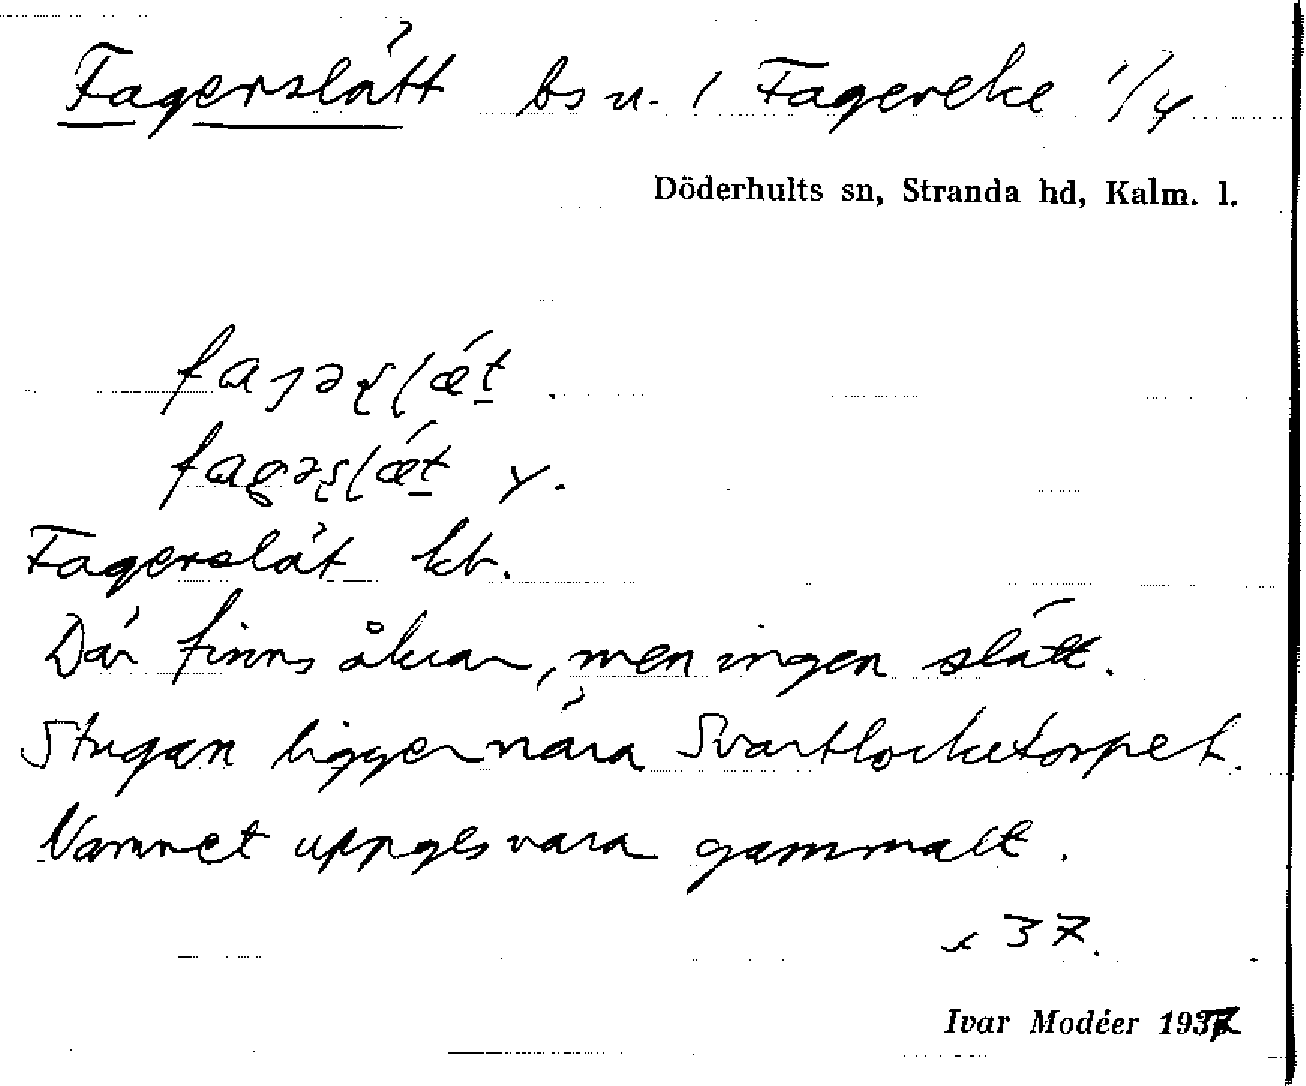 Fagerslätt bsu. / Fagereke 1/4
Döderhults sn, Stranda hd, Kalm. l.
y.
Fagerslät kb.
Där finns åkrar, men ingen slätt.
Stugan ligger nära Svartlocketorpet.
Namnet uppges vara gammalt.
s 37.
Ivar Modéer 1937